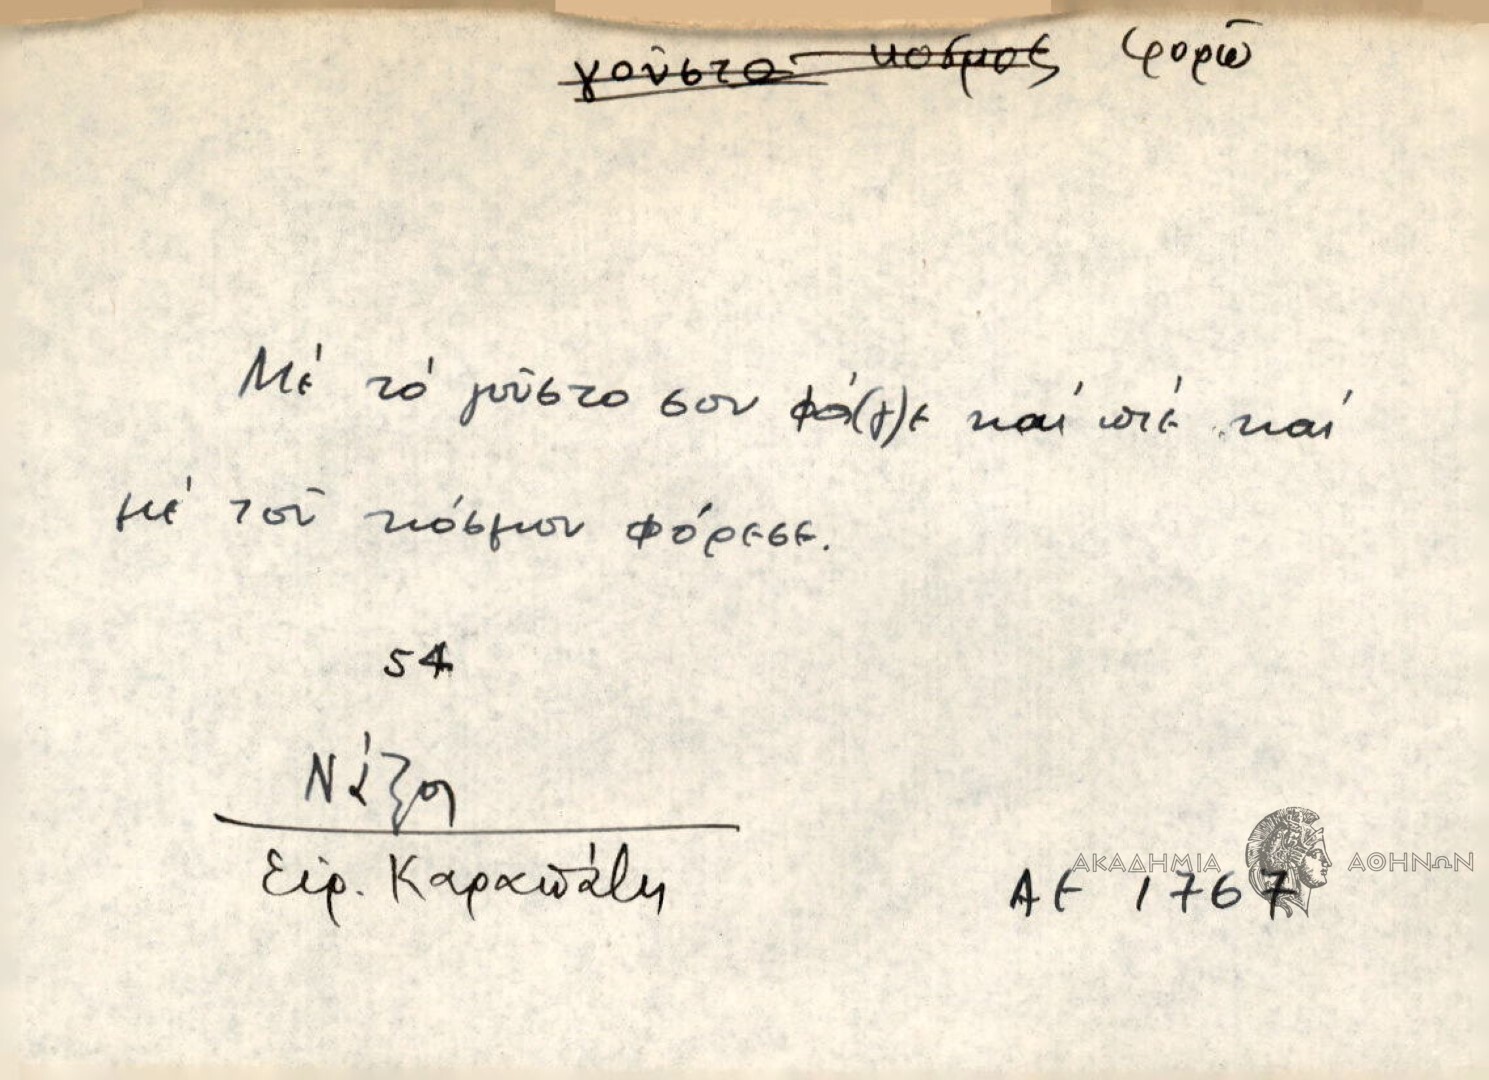 γοῦστο κοσμος φορῶ
Μέ τό γοῦστο σου φά(γ)ε καί πιέ καί
μέ τοῦ κόσμου φόρεσε.
54
Νάξος
Εἰρ.
ΑΕ 1767
ΑΚΑΔΗΜΙΑ ΑΘΗΝΩΝ